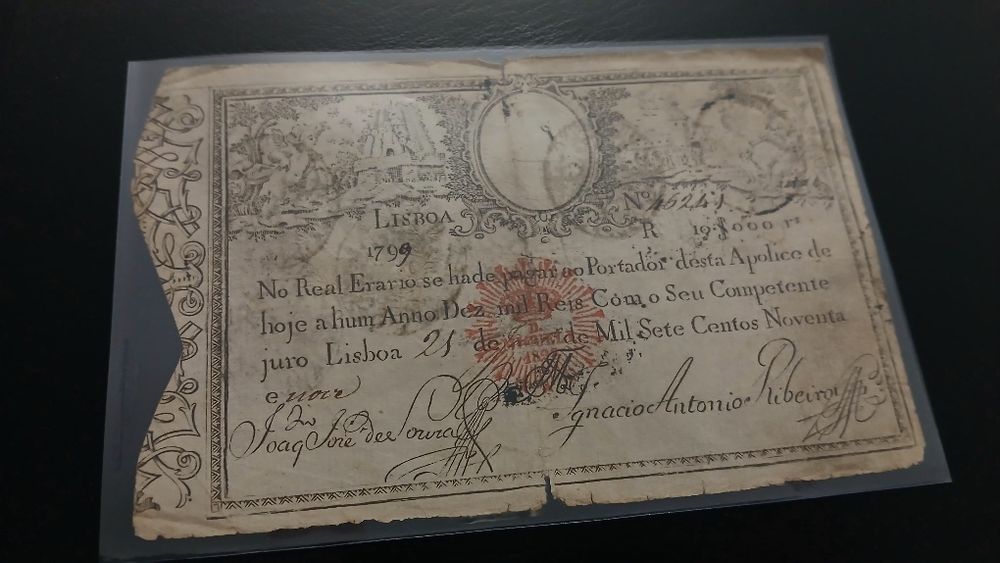 LISBOA Nº 45241
1799 R 10$000 rs
No Real Erario se hade pagar ao Portador desta Apolice de
hoje a hum Anno Dez mil Reis Com o Seu Competente
juro Lisboa 21 de de Mil Sete Centos Noventa
e nove
Joaq José de Souza
Ignacio Antonio Ribeiro